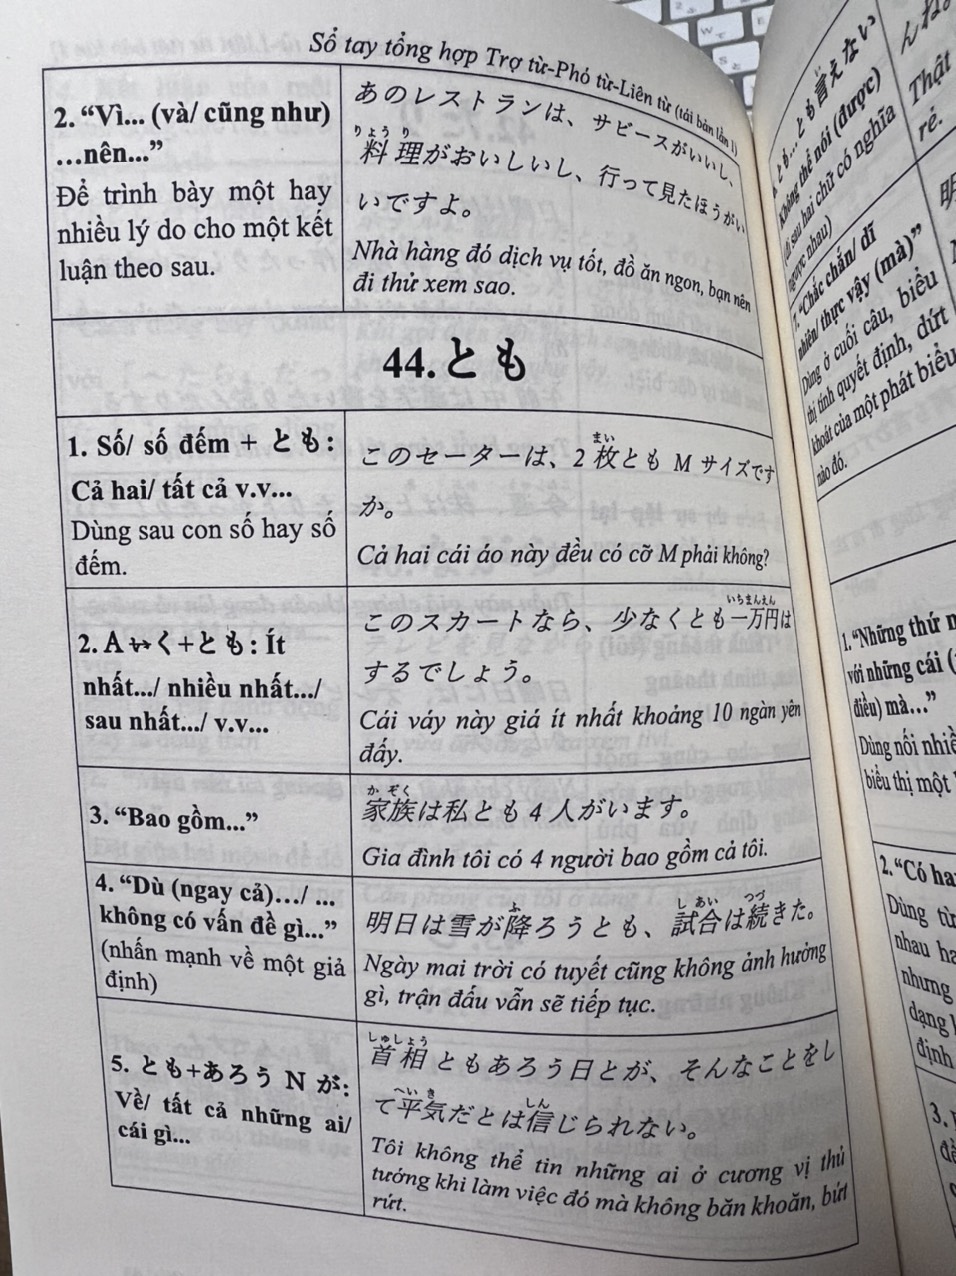 Sổ tay tổng hợp Trợ từ-Phó từ-Liên từ (tái bản lần 1)
2. “Vì... (và/ cũng như)
…nên...”
Để trình bày một hay
nhiều lý do cho một kết
luận theo sau.
あのレストランは、サビースがいいし、
りょう り
料理がおいしいし、行って見たほうがい
いですよ。
Nhà hàng đó dịch vụ tốt, đồ ăn ngon, bạn nên
đi thử xem sao.
44.とも
1. Số/ số đếm + とも:
Cả hai/ tất cả v.v...
Dùng sau con số hay số
đếm.
まい
このセーターは、2 枚とも M サイズです
か。
Cả hai cái áo này đều có cỡ M phải không?
2. A い く+とも: Ít
nhất.../ nhiều nhất.../
sau nhất.../ v.v...
いちまんえん
このスカートなら、少なくとも一万円は
するでしょう。
Cái váy này giá ít nhất khoảng 10 ngàn yên
đấy.
3. “Bao gồm...”
か ぞく
家族は私とも 4 人がいます。
Gia đình tôi có 4 người bao gồm cả tôi.
4. “Dù (ngay cả).../ ...
không có vấn đề gì...”
(nhấn mạnh về một giả
định)
ふ し あい つづ
明日は雪が降ろうとも、試合は続きた。
Ngày mai trời có tuyết cũng không ảnh hưởng
gì, trận đấu vẫn sẽ tiếp tục.
5. とも+あろう N が:
Về/ tất cả những ai/
cái gì...
しゅしょう
首相ともあろう日とが、そんなことをし
へい き しん
て平気だとは信じられない。
Tôi không thể tin những ai ở cương vị thủ
tướng khi làm việc đó mà không băn khoăn, bứt
rứt.
とも... とも言えない
Không thể nói (được)
(đi sau hai chữ có nghĩa
ngược nhau)
Thật
rẻ.
7. “Chắc chắn/ dĩ
nhiên/ thực vậy (mà)”
Dùng ở cuối câu, biểu
thị tính quyết định, dứt
khoát của một phát biểu
nào đó.
明
1. “Những thứ
với những cái
điều) mà...”
Dùng nối
biểu thị một
2. “Có
Dùng từ
nhau
nhưng
dạng
định
3.